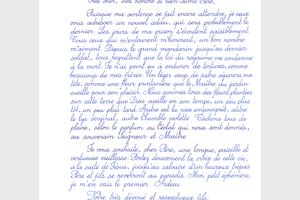 Très cher, très honoré et bien-aimé Père,
Puisque ma sentence se fait encore attendre, je veux
vous adresser un nouvel adieu, qui sera probablement le
dernier. Les jours de ma prison s'écoulent paisiblement.
Tous ceux qui m'entourent m'honorent, un bon nombre
m'aiment. Depuis le grand mandarin jusqu'au dernier
soldat, tous regrettent que la loi du royaume me condamne
à la mort. Je n'ai point eu à endurer de tortures comme
beaucoup de mes frères. Un léger coup de sabre séparera ma
tête, comme une fleur printanière que le Maître du jardin
cueille pour son plaisir. Nous sommes tous des fleurs plantées
sur cette terre que Dieu cueille en son temps, un peu plus
tôt, un peu plus tard. Autre est la rose empourprée, autre
le lys virginal, autre l'humble violette. Tâchons tous de
plaire, selon le parfum ou l'éclat qui nous sont donnés,
au souverain Seigneur et Maître.
Je vous souhaite, cher Père, une longue, paisible et
vertueuse vieillesse. Portez doucement la croix de cette vie,
à la suite de Jésus, jusqu'au calvaire d'un heureux trépas.
Père et fils se reverront au paradis. Moi, petit éphémère,
je m'en vais le premier. Adieu.
Votre très dévoué et respectueux fils.